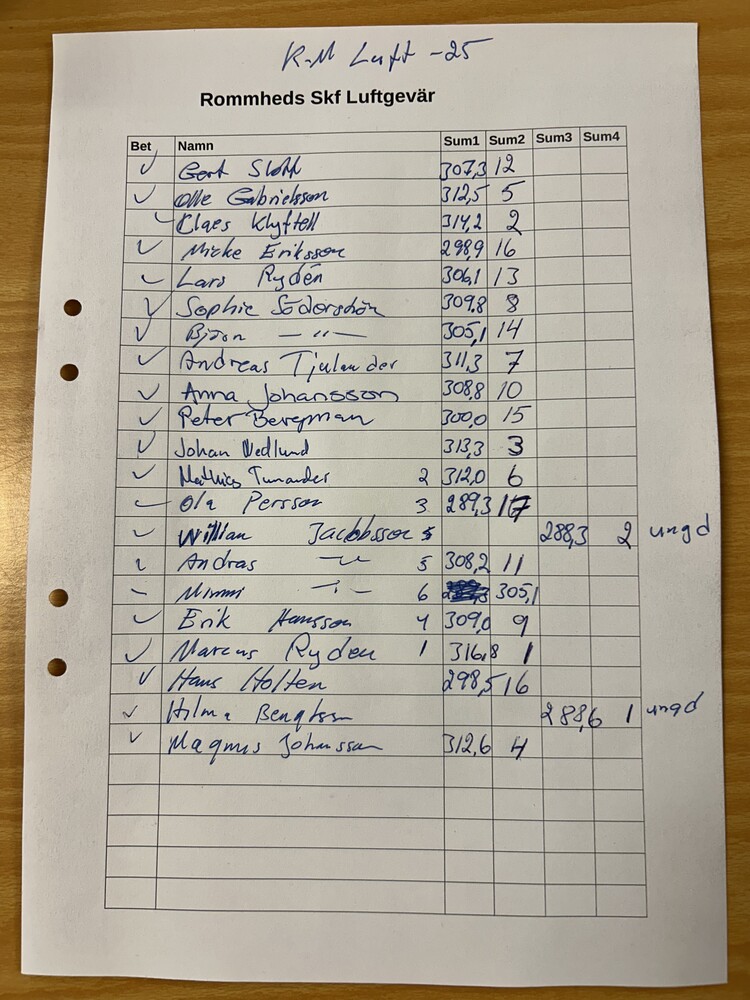 K-M Luft -25
Rommheds Skf Luftgevär
Bet Namn Sum1 Sum2 Sum3 Sum4
✓ Gert 307,3 12
✓ Olle Gabrielsson 312,5 5
✓ Claes Klyftell 314,2 2
✓ Micke Eriksson 298,9 16
✓ Lars Rydén 306,1 13
✓ Sophie 309,8 8
✓ Björn — " — 305,1 14
✓ Andreas Tjulander 311,3 7
✓ Anna Johansson 308,8 10
✓ Peter Bergman 300,0 15
✓ Johan Wedlund 313,3 3
✓ Mathias Tunander 2 312,0 6
✓ Ola Persson 3 289,3 17
✓ William Jacobsson 5 288,3 2 ungd
✓ Andras — " — 5 308,2 11
✓ Mimmi — " — 6 305,1
✓ Erik Hansson 4 309,0 9
✓ Marcus Ryden 1 316,8 1
✓ Hans Holten 298,5 16
✓ Hilma Bengtsson 288,6 1 ungd
✓ Magnus Johansson 312,6 4